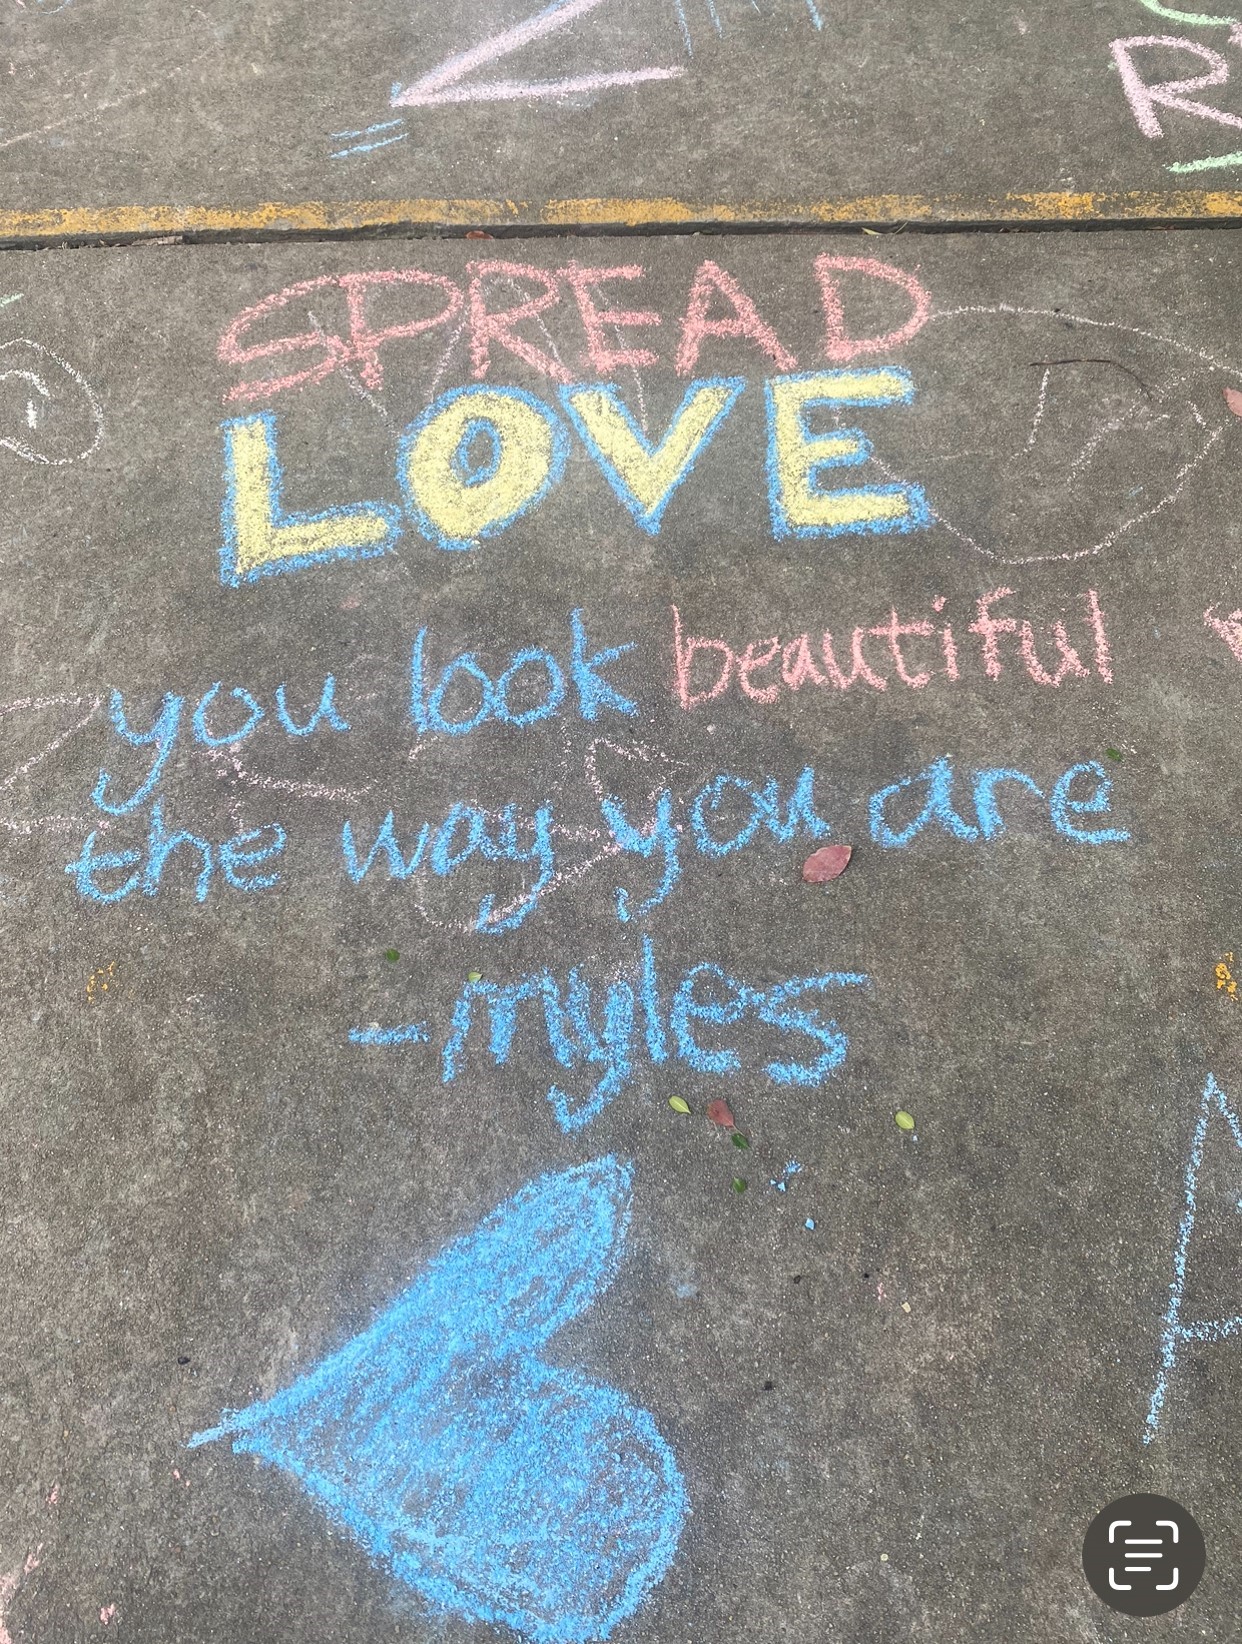 SPREAD
LOVE
you look beautiful
the way you are
-myles